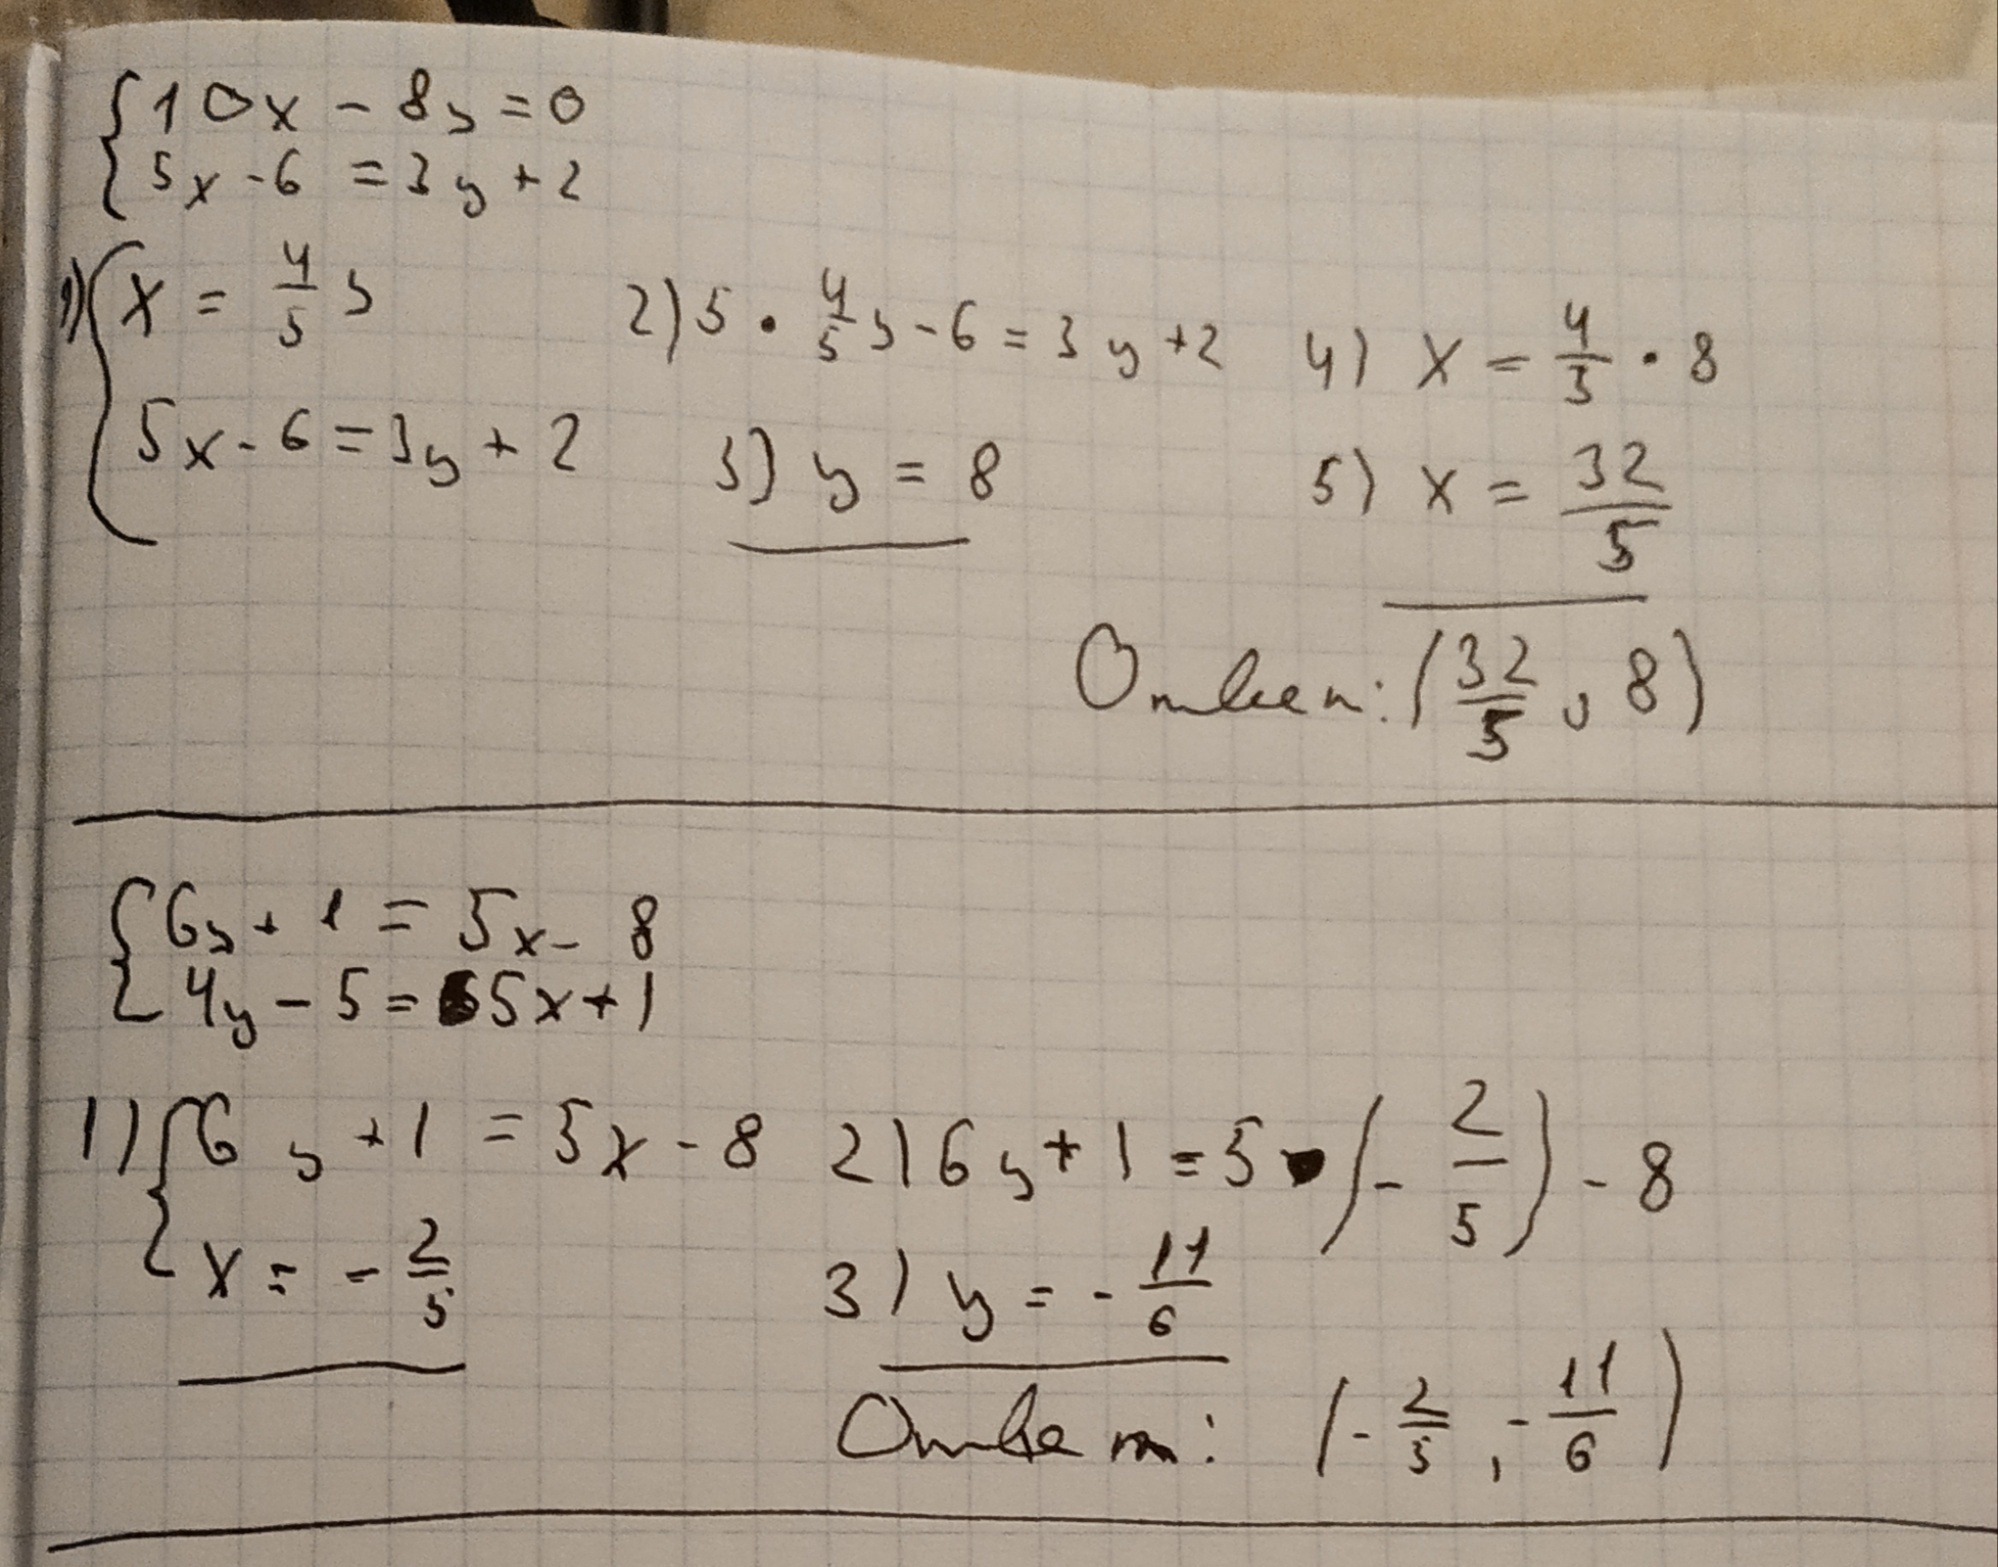 {10x - 8y = 0
{5x - 6 = 3y + 2
1) {x = 4/5 y
{5x - 6 = 3y + 2
2) 5 · 4/5 y - 6 = 3y + 2
3) y = 8
4) x = 4/5 · 8
5) x = 32/5
Ответ: (32/5, 8)
{6y + 1 = 5x - 8
{4y - 5 = 5x + 1
1) {6y + 1 = 5x - 8
{x = - 2/5
2) 6y + 1 = 5 · (- 2/5) - 8
3) y = - 11/6
Ответ: (- 2/5, - 11/6)